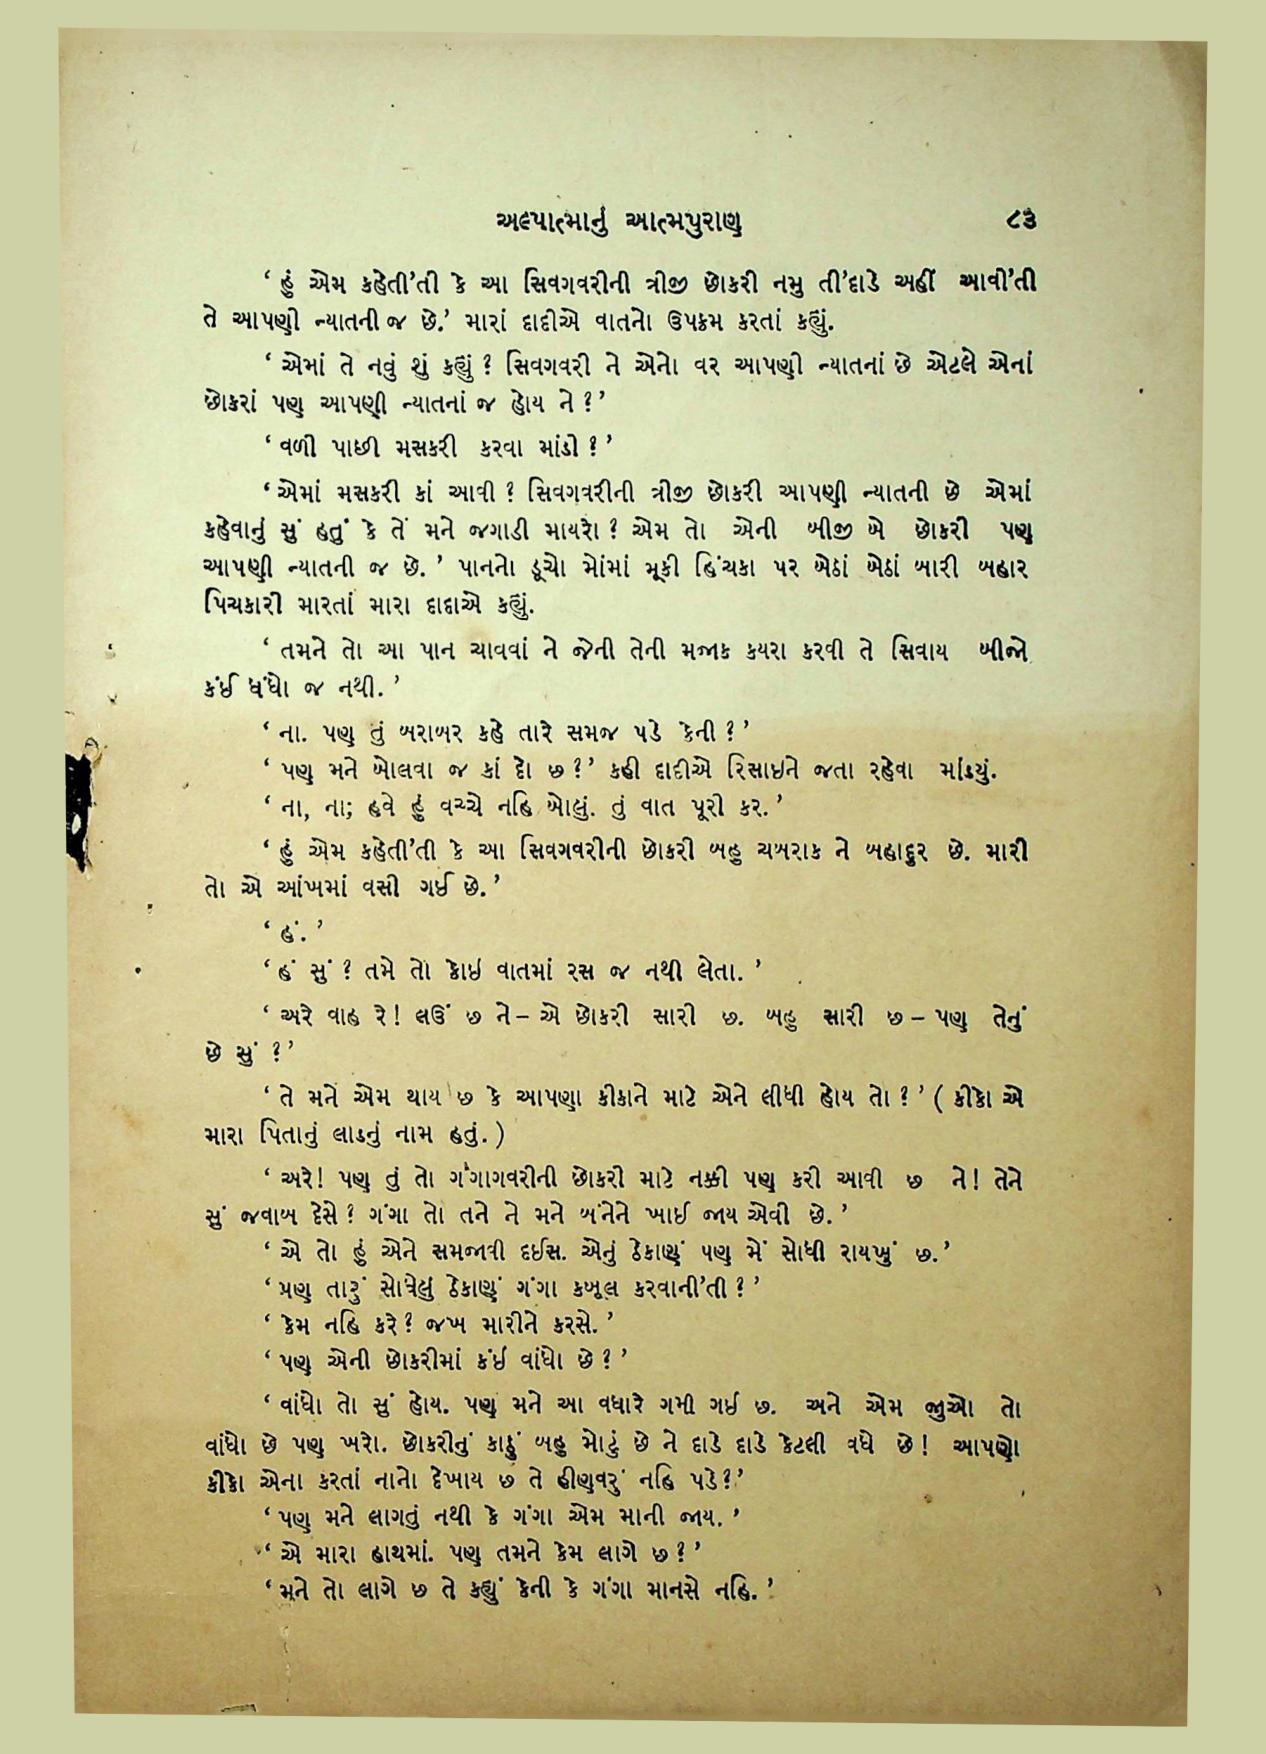 અલ્પાત્માનું આત્મપુરાણ ૮૩
‘ હું એમ કહેતી’તી કે આ સિવગવરીની ત્રીજી છોકરી નમુ તી’દાડે અહીં આવી’તી
તે આપણી ન્યાતની જ છે.’ મારાં દાદીએ વાતનો ઉપક્રમ કરતાં કહ્યું.
‘ એમાં તે નવું શું કહ્યું ? સિવગવરી ને એનો વર આપણી ન્યાતનાં છે એટલે એનાં
છોકરાં પણ આપણી ન્યાતનાં જ હોય ને ?’
‘ વળી પાછી મસકરી કરવા માંડી ? ’
‘ એમાં મસકરી કાં આવી ? સિવગવરીની ત્રીજી છોકરી આપણી ન્યાતની છે એમાં
કહેવાનું સું હતું કે તેં મને જગાડી માયરો ? એમ તો એની બીજી બે છોકરી પણ
આપણી ન્યાતની જ છે. ’ પાનનો ડૂચો મોંમાં મૂકી હિંચકા પર બેઠાં બેઠાં બારી બહાર
પિચકારી મારતાં મારા દાદાએ કહ્યું.
‘ તમને તો આ પાન ચાવવાં ને જેની તેની મજાક કયરા કરવી તે સિવાય બીજો
કંઈ ધંધો જ નથી. ’
‘ ના. પણ તું બરાબર કહે તારે સમજ પડે કેની ? ’
‘ પણ મને બોલવા જ કાં દો છ ?’ કહી દાદીએ રિસાઇને જતા રહેવા માંડયું.
‘ ના, ના; હવે હું વચ્ચે નહિ બોલું. તું વાત પૂરી કર. ’
‘ હું એમ કહેતી’તી કે આ સિવગવરીની છોકરી બહુ ચબરાક ને બહાદુર છે. મારી
તો એ આંખમાં વસી ગઈ છે. ’
‘ હં. ’
‘ હં સું ? તમે તો કોઇ વાતમાં રસ જ નથી લેતા. ’
‘ અરે વાહ રે ! લઉં છ ને – એ છોકરી સારી છ. બહુ સારી છ – પણ તેનું
છે સું ?’
‘ તે મને એમ થાય છ કે આપણા કીકાને માટે એને લીધી હોય તો ? ’ ( કીકો એ
મારા પિતાનું લાડનું નામ હતું. )
‘ અરે! પણ તું તો ગંગાગવરીની છોકરી માટે નક્કી પણ કરી આવી છ ને ! તેને
સું જવાબ દેસે ? ગંગા તો તને ને મને બંનેને ખાઈ જાય એવી છે. ’
‘ એ તો હું એને સમજાવી દઈસ. એનું ઠેકાણું પણ મેં સોધી રાયખું છ. ’
‘ પણ તારું સોધેલું ઠેકાણું ગંગા કબૂલ કરવાની’તી ? ’
‘ કેમ નહિ કરે ? જખ મારીને કરસે. ’
‘ પણ એની છોકરીમાં કંઈ વાંધો છે ? ’
‘ વાંધો તો સું હોય. પણ મને આ વધારે ગમી ગઇ છ. અને એમ જુઓ તો
વાંધો છે પણ ખરો. છોકરીનું કાઠું બહુ મોટું છે ને દાડે દાડે કેટલી વધે છે ! આપણો
કીકો એના કરતાં નાનો દેખાય છ તે હીણવરું નહિ પડે ?’
‘ પણ મને લાગતું નથી કે ગંગા એમ માની જાય. ’
‘ એ મારા હાથમાં. પણ તમને કેમ લાગે છ ? ’
‘ મને તો લાગે છ તે કહ્યું કેની કે ગંગા માનસે નહિ. ’